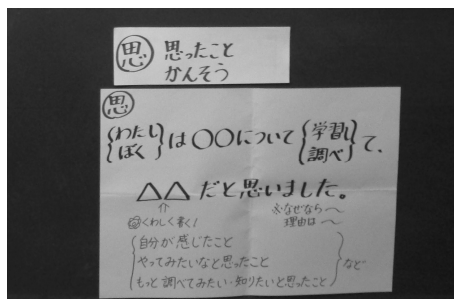 思 思ったこと
かんそう
思
{わたし ぼく}は○○について{学習し 調べ}て、
△△だと思いました。
※なぜなら〜
理由は〜
くわしく書く!
自分が感じたこと
やってみたいなと思ったこと
もっと調べてみたい・知りたいと思ったこと
など